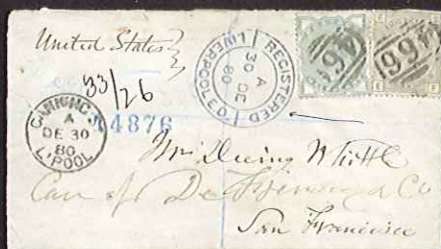 United States
33/26
REGISTERED
LIVERPOOL
30 DE
80
A
CANNING St
A
DE 30
80
L'POOL
4876
466
466
Care of De & Co
San Francisco